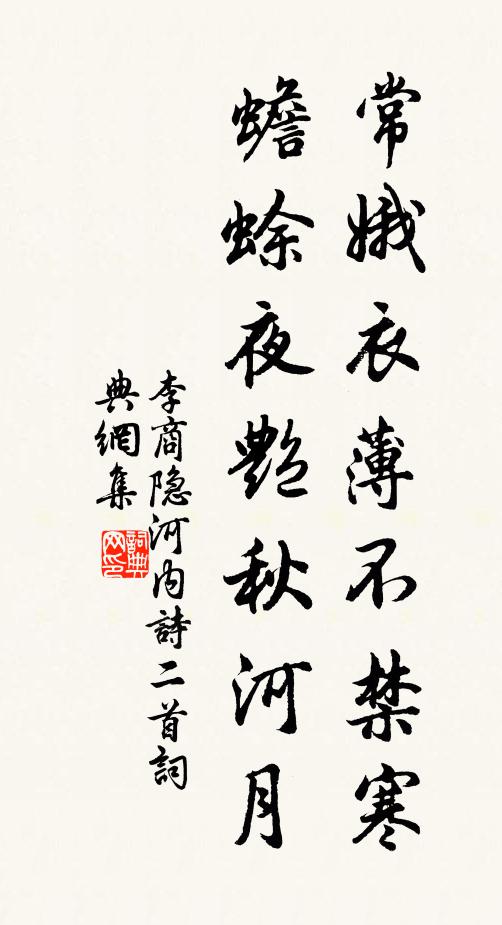 常娥衣薄不禁寒
蟾蜍夜艷秋河月
李商隐河内詩二首詞
典網集
詞典网印